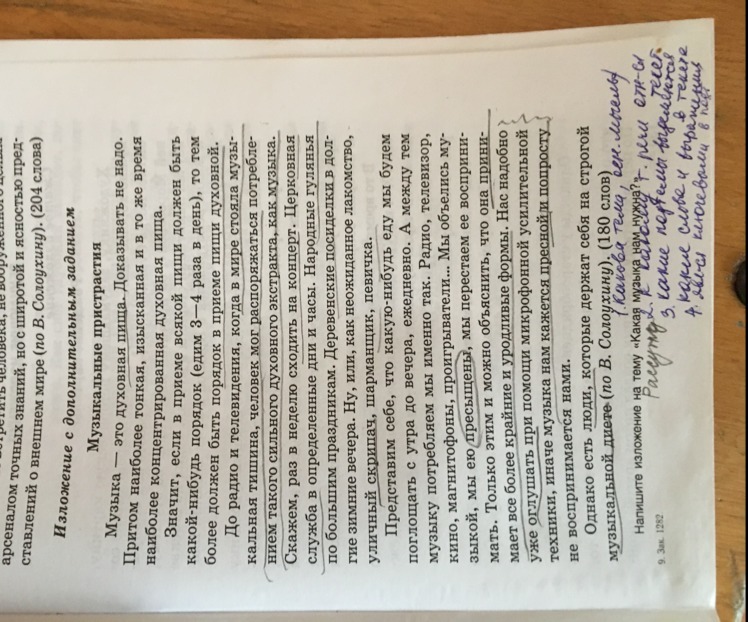 встретить человека, не вооруженного целым
арсеналом точных знаний, но с широтой и ясностью пред-
ставлений о внешнем мире (по В. Солоухину). (204 слова)
Изложение с дополнительным заданием
Музыкальные пристрастия
Музыка — это духовная пища. Доказывать не надо.
Притом наиболее тонкая, изысканная и в то же время
наиболее концентрированная духовная пища.
Значит, если в приеме всякой пищи должен быть
какой-нибудь порядок (едим 3—4 раза в день), то тем
более должен быть порядок в приеме пищи духовной.
До радио и телевидения, когда в мире стояла музы-
кальная тишина, человек мог распоряжаться потребле-
нием такого сильного духовного экстракта, как музыка.
Скажем, раз в неделю сходить на концерт. Церковная
служба в определенные дни и часы. Народные гулянья
по большим праздникам. Деревенские посиделки в дол-
гие зимние вечера. Ну, или, как неожиданное лакомство,
уличный скрипач, шарманщик, певичка.
Представим себе, что какую-нибудь еду мы будем
поглощать с утра до вечера, ежедневно. А между тем
музыку потребляем мы именно так. Радио, телевизор,
кино, магнитофоны, проигрыватели... Мы объелись му-
зыкой, мы ею пресыщены, мы перестаем ее восприни-
мать. Только этим и можно объяснить, что она прини-
мает все более крайние и уродливые формы. Нас надобно
уже оглушать при помощи микрофонной усилительной
техники, иначе музыка нам кажется пресной и попросту
не воспринимается нами.
Однако есть люди, которые держат себя на строгой
музыкальной диете (по В. Солоухину). (180 слов)
Напишите изложение на тему «Какая музыка нам нужна?»
1. Какова тема, осн. мысль
2. К какому т. речи отн-ся текст
3. Какие подтемы выделяются в тексте
4. Какие слова и выражения
явл-ся ключевыми в
9. Зак. 1282